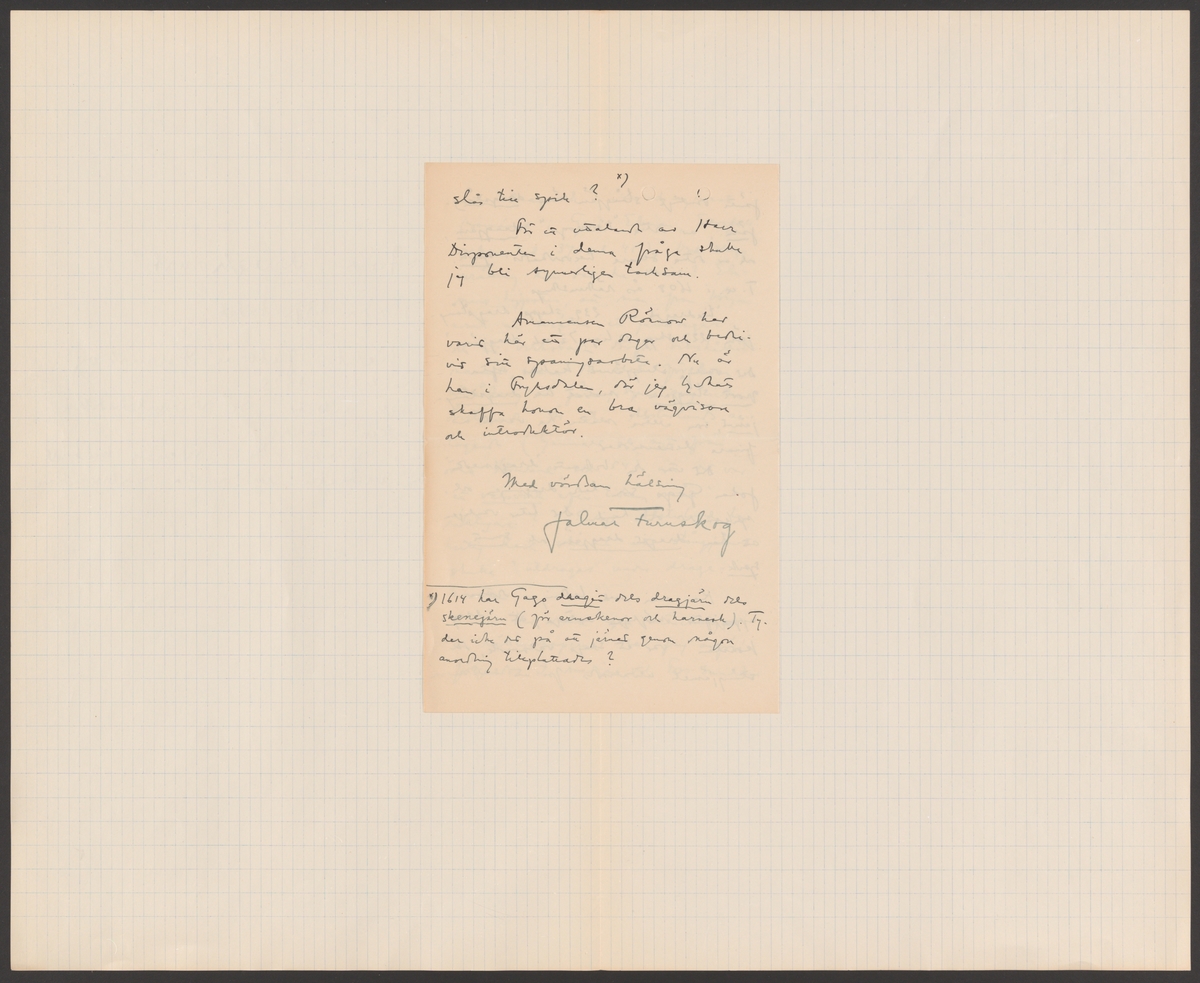 slås till spik? x)
För ett uttalande av Herr
Disponenten i denna fråga skulle
jag bli synnerligen tacksam.
Amanuensen Römow har
varit här ett par dagar och bedri-
vit sitt spaningsarbete. Nu är
han i Fryksdalen, där jag lyckats
skaffa honom en bra vägvisare
och introduktör.
Med vördsam hälsning
Jalmar Furuskog
x) 1614 har Gago dragit dels dragjärn dels
skenejärn (för armskenor och harnesk). Ty-
der icke det på att järnet genom någon
anordning tillplattades?